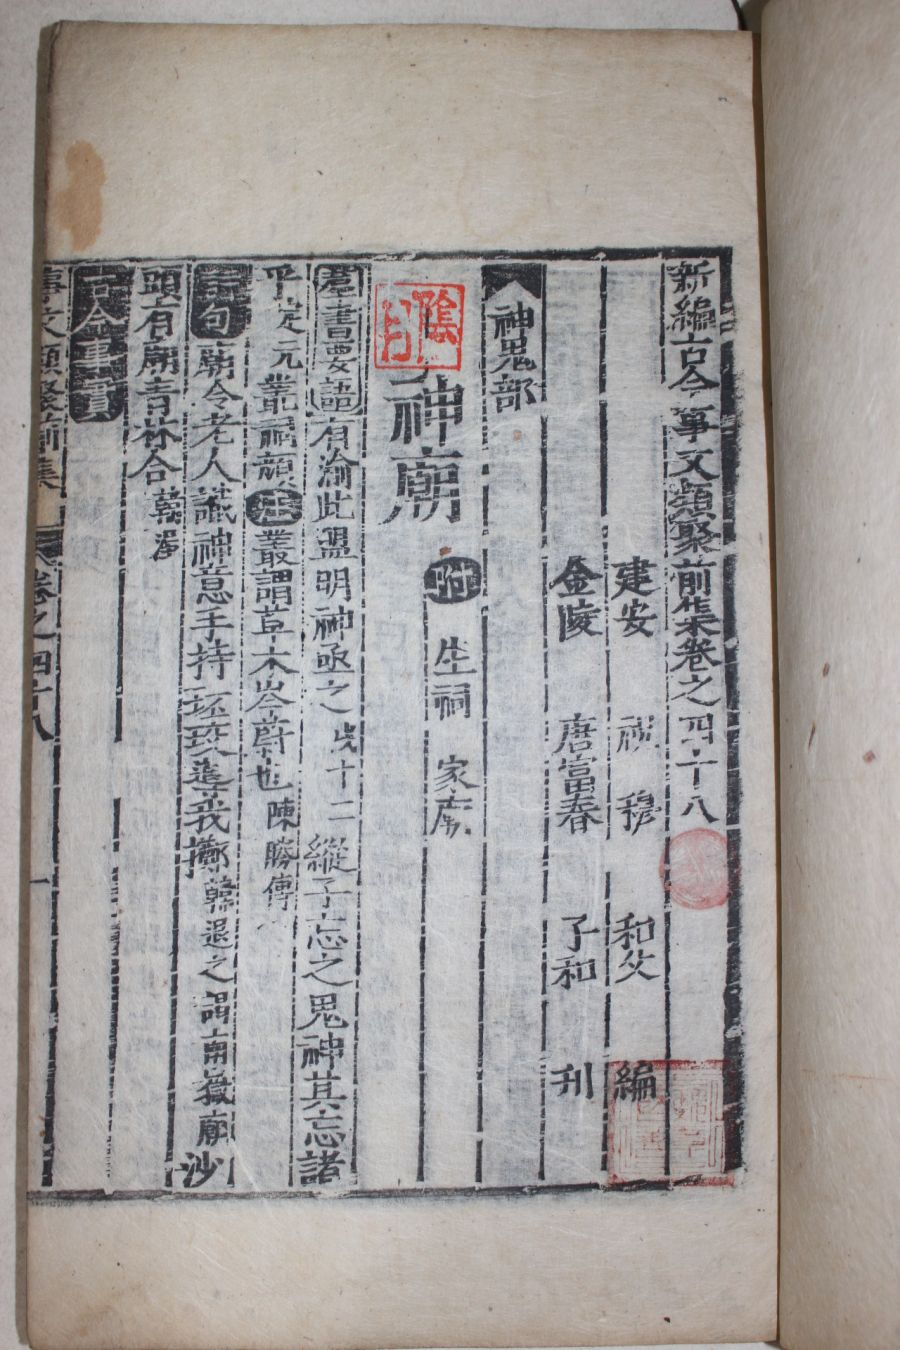 新編古今事文類聚前集卷之四十八
建安 祝 穆 和父 編
金陵 唐富春 子和 刋
神鬼部
神廟
附 生祠 家廟
羣書要語 有渝此盟明神亟之 縱子忘之鬼神其忘諸
乎定元叢祠 註 叢謂草木岑蔚也陳勝傳
古句 廟令老人識神意手持盃珓導我擲韓退之謁南嶽廟沙
頭有廟青林合韓渥
古今事實
事文類聚前集 卷之四十八 一
陰